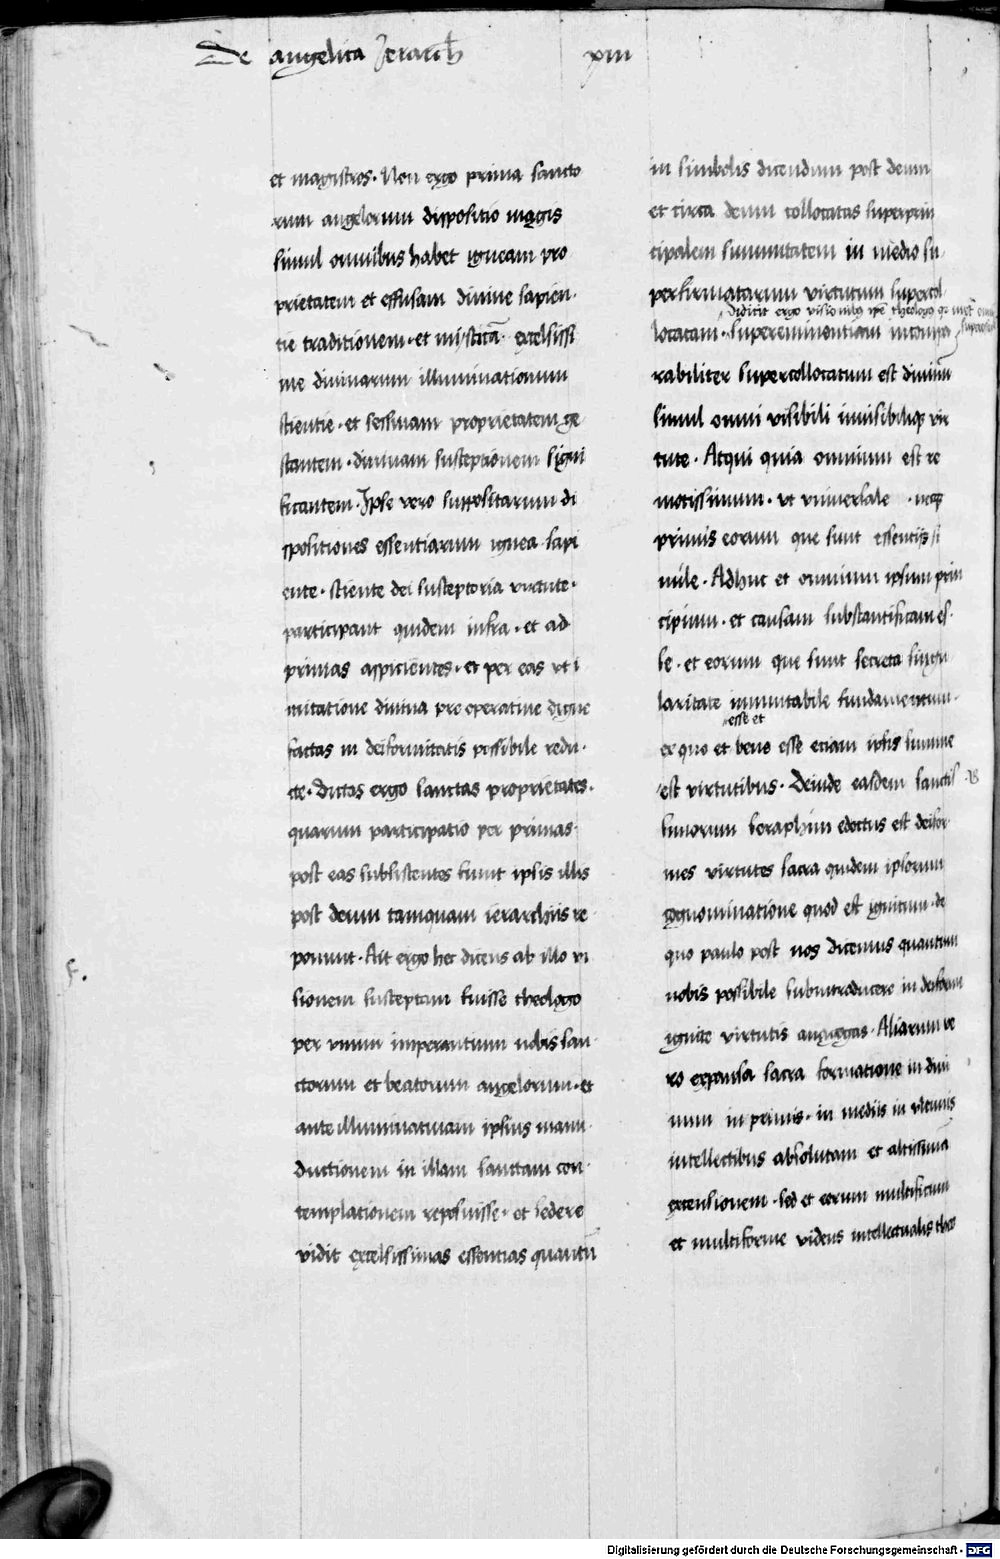 De angelica Ierarch
xiii
et magistros. Non ergo prima sancto
rum angelorum dispositio magis
simul omnibus habet igneam pro
prietatem et effusam divine sapien
tie traditionem. et misticam excelsissi
me divinarum illuminationum
scientie. et sessivam proprietatem ge
stantem. divinam susceptionem signi
ficantem. Ipse vero suppositarum di
spositiones essentiarum ignea sapi
ente. sciente dei susceptoria virtute.
participant quidem infra. et ad
primas aspicientes. et per eas ut i
mitatione divina pre operative digne
factas in deiformitatis possibile redu
cte. Dictas ergo sanctas proprietates.
quarum participatio per primas
post eas subsistentes sunt ipsis illis
post deum tamquam ierarchiis re
ponunt. Ait ergo hec dicens ab illo vi
sionem susceptam fuisse theologo
per unum imperantium nobis san
ctorum et beatorum angelorum. et
ante illuminativam ipsius manu
ductionem in illam sanctam con
templationem reposuisse. et sedere
vidit excelsissimas essentias quantum
in simbolis dicendum post deum
et circa deum collocatas superprin
cipalem summitatem in medio su
perfirmatarum virtutum supercol
Didicit ergo visionibus ipse theologus
locatam. supereminentiam
rabiliter supercollocatum est divinum
simul omni visibili invisibilique vir
tute. Atqui quia omnium est re
motissimum. ut universale . neque
primis eorum que sunt essentiis si
mile. Adhuc et omnium ipsum prin
cipium. et causam substantificam es
se. et eorum que sunt secreta singu
laritate immutabile fundamentum.
esse et
ex quo et bene esse etiam ipsis summe
est virtutibus. Deinde easdem sanctis
simorum seraphim edoctus est deifor
mes virtutes sacra quidem ipsorum
cognominatione quod est ignitum. de
quo paulo post nos dicemus quantum
nobis possibile subintroducere in deiforme
ignite virtutis anagogas. Aliarum ve
ro expansa sacra formatione in divi
num in primis. in mediis in ultimis
intellectibus absolutam et altissimam
extensionem. sed et eorum multificum
et multiforme videns intellectualis theo